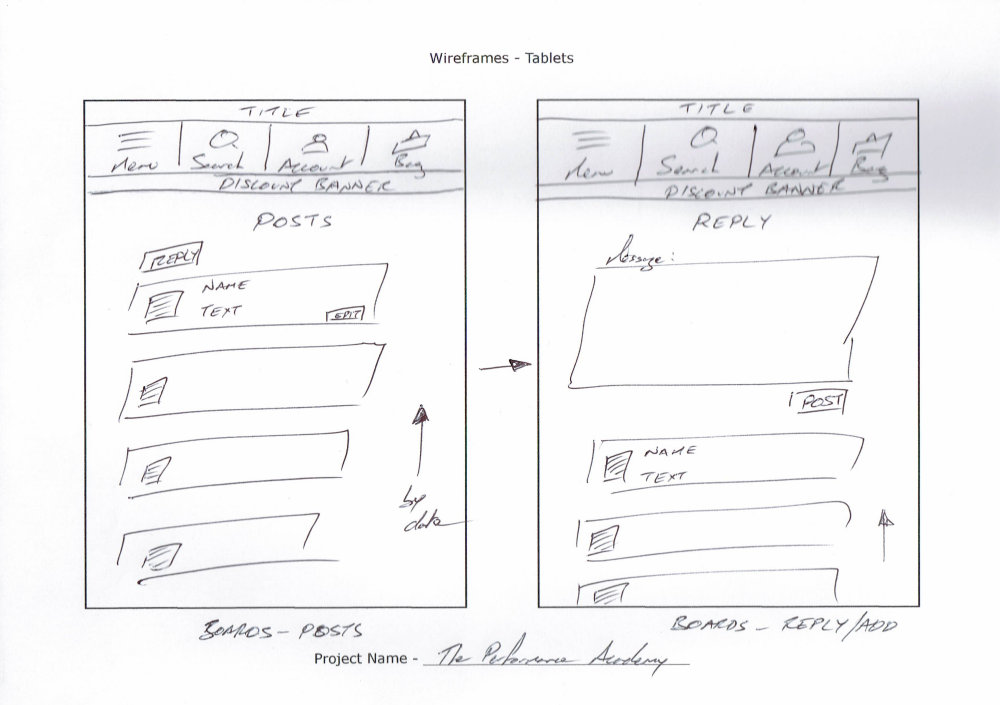 Wireframes - Tablets
TITLE
Menu Search Account Bag
DISCOUNT BANNER
POSTS
REPLY
NAME
TEXT
EDIT
by
date
BOARDS - POSTS
TITLE
Menu Search Account Bag
DISCOUNT BANNER
REPLY
Message:
POST
NAME
TEXT
BOARDS - REPLY/ADD
Project Name - The Performance Academy